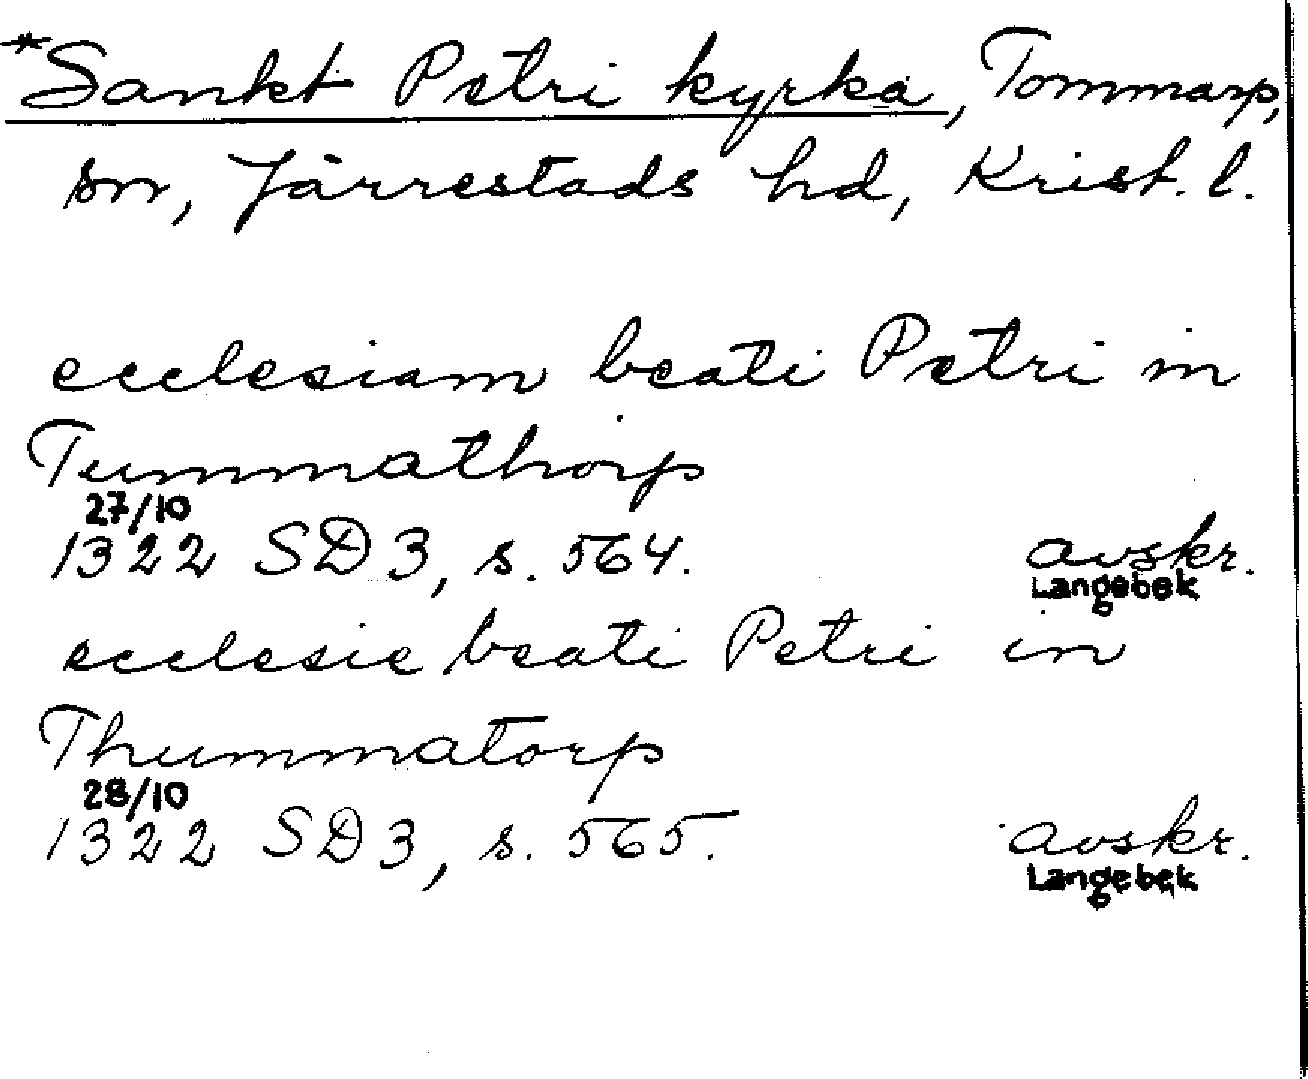 *Sankt Petri kyrka, Tommarp,
sn, Järrestads hd, Krist. l.
ecclesiam beati Petri in
Tummathorp
27/10
1322 SD 3, s. 564. avskr.
Langebek
ecclesie beati Petri in
Thummatorp
28/10
1322 SD 3, s. 565. avskr.
Langebek